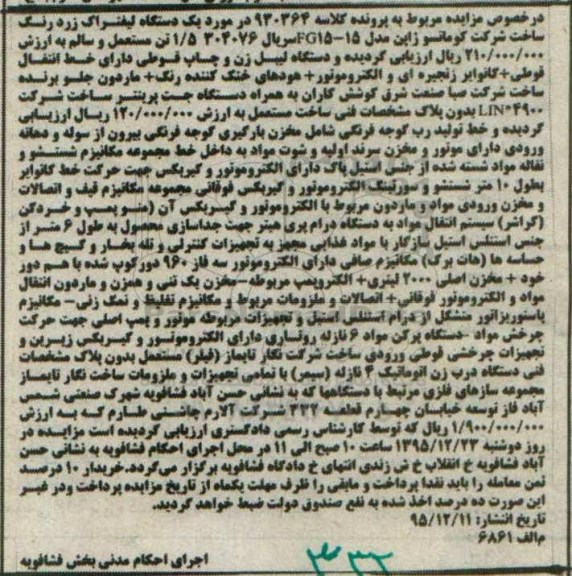 درخصوص مزایده مربوط به پرونده کلاسه ۹۳۰۳۶۴ در مورد یک دستگاه لیفتراک زرد رنگ
ساخت شرکت کوماتسو ژاپن مدل FG۱۵-۱۵سریال ۳۰۴۰۷۶ ۱/۵ تن مستعمل و سالم به ارزش
۲۱۰/۰۰۰/۰۰۰ ریال ارزیابی گردیده و دستگاه لیبل زن و چاپ قوطی دارای خط انتقال
قوطی+کانوایر زنجیره ای و الکتروموتور+ هودهای خنک کننده رنگ+ ماردون جلو برنده
ساخت صبا صنعت شرق کوشش کاران به همراه دستگاه جت پرینتر ساخت شرکت
LIN*۴۹۰۰ بدون پلاک مشخصات فنی ساخت مستعمل به ارزش ۱۲۰/۰۰۰/۰۰۰ ریال ارزیابی
گردیده و خط تولید رب گوجه فرنگی شامل مخزن بارگیری گوجه فرنگی بیرون از سوله و دهانه
ورودی دارای موتور و مخزن سرند اولیه و شوت مواد به داخل خط مجموعه مکانیزم شستشو و
نقاله مواد شسته شده از جنس استیل پاک دارای الکتروموتور و گیربکس جهت حرکت خط کانوایر
بطول ۱۰ متر شستشو و سورتینگ الکتروموتور و گیربکس فوقانی مجموعه مکانیزم قیف و اتصالات
و مخزن ورودی مواد و ماردون مربوط با الکتروموتور و گیربکس آن (منو پمپ و خردکن
(کراشر) سیستم انتقال مواد به دستگاه درام پری هیتر جهت جداسازی محصول به طول ۶ متر از
جنس استنلس استیل سازگار با مواد غذایی مجهز به تجهیزات کنترلی و تله بخار و گیج ها و
حساسه ها (هات برک) مکانیزم صافی دارای الکتروموتور سه فاز ۹۶۰ دورکوپ شده با هم دور
خود + مخزن اصلی ۲۰۰۰ لیتری+ الکتروپمپ مربوطه-مخزن یک تنی و همزن و ماردون انتقال
مواد و الکتروموتور فوقانی+ اتصالات و ملزومات مربوط و مکانیزم تغلیظ و نمک زنی- مکانیزم
پاستوریزاتور متشکل از درام استنلس استیل و تجهیزات مربوطه موتور و پمپ اصلی جهت حرکت
چرخش مواد -دستگاه پرکن مواد ۶ نازله روتاری دارای الکتروموتور و گیربکس زیرین و
تجهیزات چرخشی قوطی ورودی ساخت شرکت نگار تایماز (فیلر) مستعمل بدون پلاک مشخصات
فنی دستگاه درب زن اتوماتیک ۴ نازله (سیمر) با تمامی تجهیزات و ملزومات ساخت نگار تایماز
مجموعه سازهای فلزی مرتبط با دستگاهها که به نشانی حسن آباد فشافویه شهرک صنعتی شمس
آباد فاز توسعه خیابان چهارم قطعه ۲۳۲ شرکت آلارم چاشنی طارم که به ارزش
۱/۹۰۰/۰۰۰/۰۰۰ ریال که توسط کارشناس رسمی دادگستری ارزیابی گردیده است مزایده در
روز دوشنبه ۱۳۹۵/۱۲/۲۳ ساعت ۱۰ صبح الی ۱۱ در محل اجرای احکام فشافویه به نشانی حسن
آباد فشافویه خ انقلاب خ ش زندی انتهای خ دادگاه فشافویه برگزار می‌گردد.خریدار ۱۰ درصد
ثمن معامله را باید نقدا پرداخت و مابقی را ظرف مهلت یکماه از تاریخ مزایده پرداخت ودر غیر
این صورت ده درصد اخذ شده به نفع صندوق دولت ضبط خواهد گردید.
تاریخ انتشار: ۹۵/۱۲/۱۱
م‌الف ۶۸۶۱
اجرای احکام مدنی بخش فشافویه